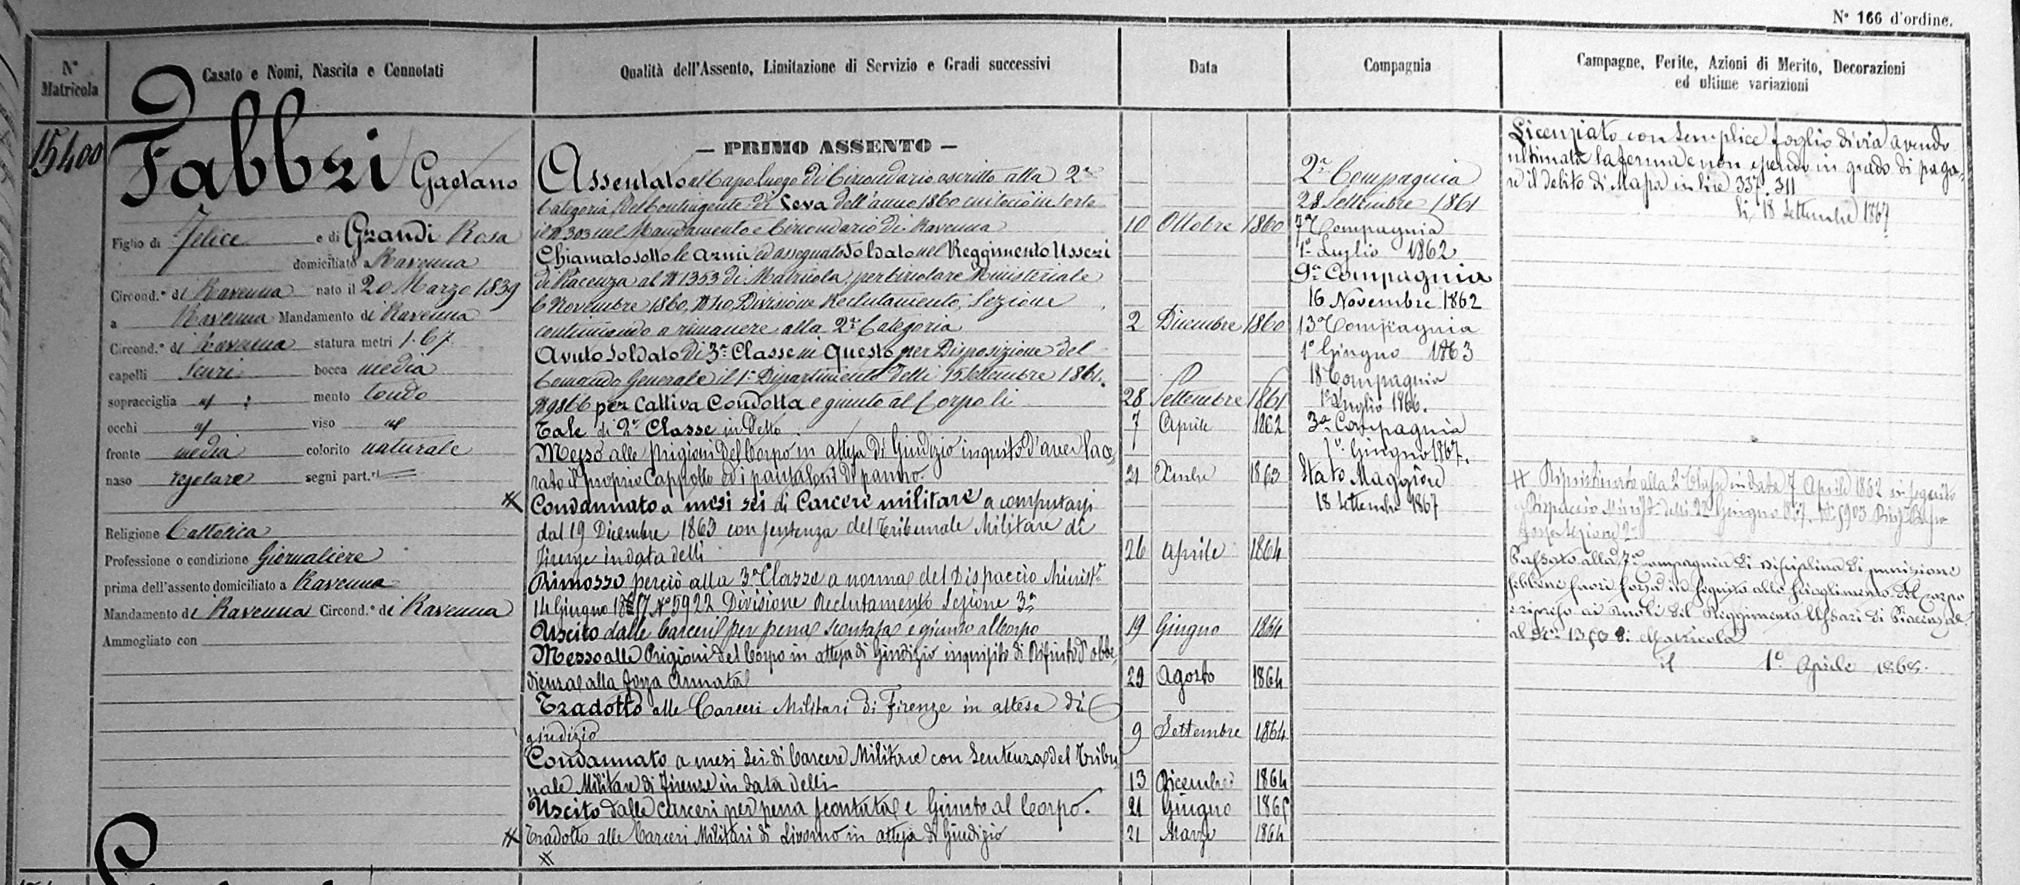 N° 166 d'ordine.
N° Matricola
Casato e Nomi, Nascita e Connotati
Qualità dell'Assento, Limitazione di Servizio e Gradi successivi
Data
Compagnia
Campagne, Ferite, Azioni di Merito, Decorazioni
ed ultime variazioni
15400
Fabbri Gaetano
Figlio di Felice e di Grandi Rosa
domiciliato a Ravenna
Circond.° di Ravenna nato il 20 Marzo 1839
a Ravenna Mandamento di Ravenna
Circond.° di Ravenna statura metri 1.67
capelli scuri bocca media
sopracciglia " mento tondo
occhi " viso "
fronte media colorito naturale
naso regolare segni part.ri
Religione Cattolica
Professione o condizione Giornaliere
prima dell'assento domiciliato a Ravenna
Mandamento di Ravenna Circond.° di Ravenna
Ammogliato con
— PRIMO ASSENTO —
Assentato al Capoluogo di Circondario ascritto alla 2a
Categoria del Contingente di Leva dell'anno 1860 cui toccò in sorte
il N 303 nel Mandamento e Circondario di Ravenna 10 Ottobre 1860
Chiamato sotto le armi ed assegnato Soldato nel Reggimento Usseri
di Piacenza al N 1353 di Matricola, per Circolare Ministeriale
6 Novembre 1860, N 40, Divisione Reclutamento, Sezione
continuando a rimanere alla 2a Categoria 2 Dicembre 1860
Avuto Soldato di 3a Classe in Questo per Disposizione del
Comando Generale il 1° Dipartimento delli 15 Settembre 1861.
N 9866 per Cattiva Condotta e giunto al Corpo li 28 Settembre 1861
Tale di 2a Classe in Detto 7 Aprile 1862
Messo alle prigioni del Corpo in attesa di Giudizio inquisito d'aver lace,
rato il proprio Cappotto ed i pantaloni di panno 21 Xmbre 1863
# Condannato a mesi sei di Carcere militare a computarsi
dal 19 Dicembre 1863 con sentenza del Tribunale Militare di
Firenze in data delli 26 Aprile 1864
Rimosso perciò alla 3a Classe a norma del Dispaccio Minist.le
14 Giugno N° 5922 Divisione Reclutamento Sezione 3a
Uscito dalle Carceri per pena scontata e giunto al Corpo 19 Giugno 1864
Messo alle Prigioni del Corpo in attesa di Giudizio inquisito di Rifiuto d'obbe,
dienza alla forza armata 29 Agosto 1864
Tradotto alle Carceri Militari di Firenze in attesa di
giudizio 9 Settembre 1864
Condannato a mesi sei di Carcere Militare con sentenza del Tribu,
nale Militare di Firenze in data delli 13 Dicembre 1864
Uscito dalle carceri per pena scontata e Giunto al Corpo. 21 Giugno 1865
# Tradotto alle Carceri Militari di Livorno in attesa di Giudizio 21 Marzo 1864
#
2a Compagnia
28 Settembre 1861
7a Compagnia
1° Luglio 1862
9a Compagnia
16 Novembre 1862
13a Compagnia
1° Giugno 1863
18 Compagnia
1° Luglio 1866.
3a Compagnia
1° Giugno 1867.
Stato Maggiore
18 Settembre 1867
Licenziato con semplice foglio di via avendo
ultimata la ferma e non essendo in grado di paga,
re il debito di Massa in lire 357. 311
Li 18 Settembre 1867
# Ripristinato alla 2a Classe in data 7 Aprile 1862 in seguito
Dispaccio Minist. delli 22 Giugno N° 5903
Passato alla compagnia di disciplina di punizione
sebbene fuori forza in seguito allo scioglimento del Corpo
e ripreso ai ruoli del Reggimento Ussari di Piacenza
al N° di Matricola
li 1° Aprile 1868.